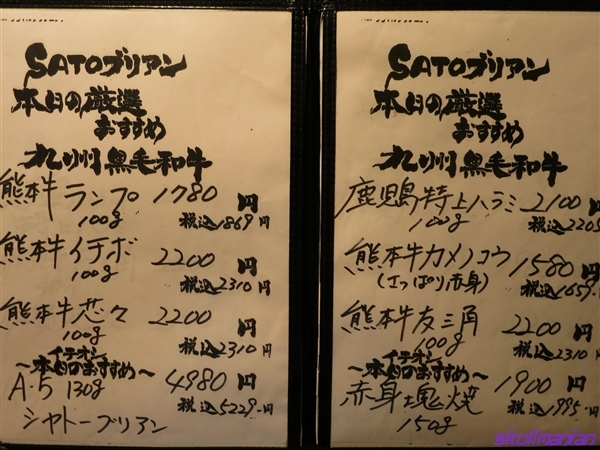 SATOブリアン
本日の厳選
おすすめ
九州黒毛和牛
熊本牛ランプ 1780円
100g 税込1869円
熊本牛イチボ 2200円
100g 税込2310円
熊本牛芯々 2200円
100g 税込2310円
イチオシ
〜本日のおすすめ〜
A・5 130g 4980円
税込5229円
シャトーブリアン
SATOブリアン
本日の厳選
おすすめ
九州黒毛和牛
鹿児島特上ハラミ 2100円
100g 税込2205
熊本牛カメノコウ 1580円
(さっぱり赤身) 税込1659
熊本牛友三角 2200円
100g 税込2310
イチオシ
〜本日のおすすめ〜
赤身塊焼 1900円
150g 税込1995円